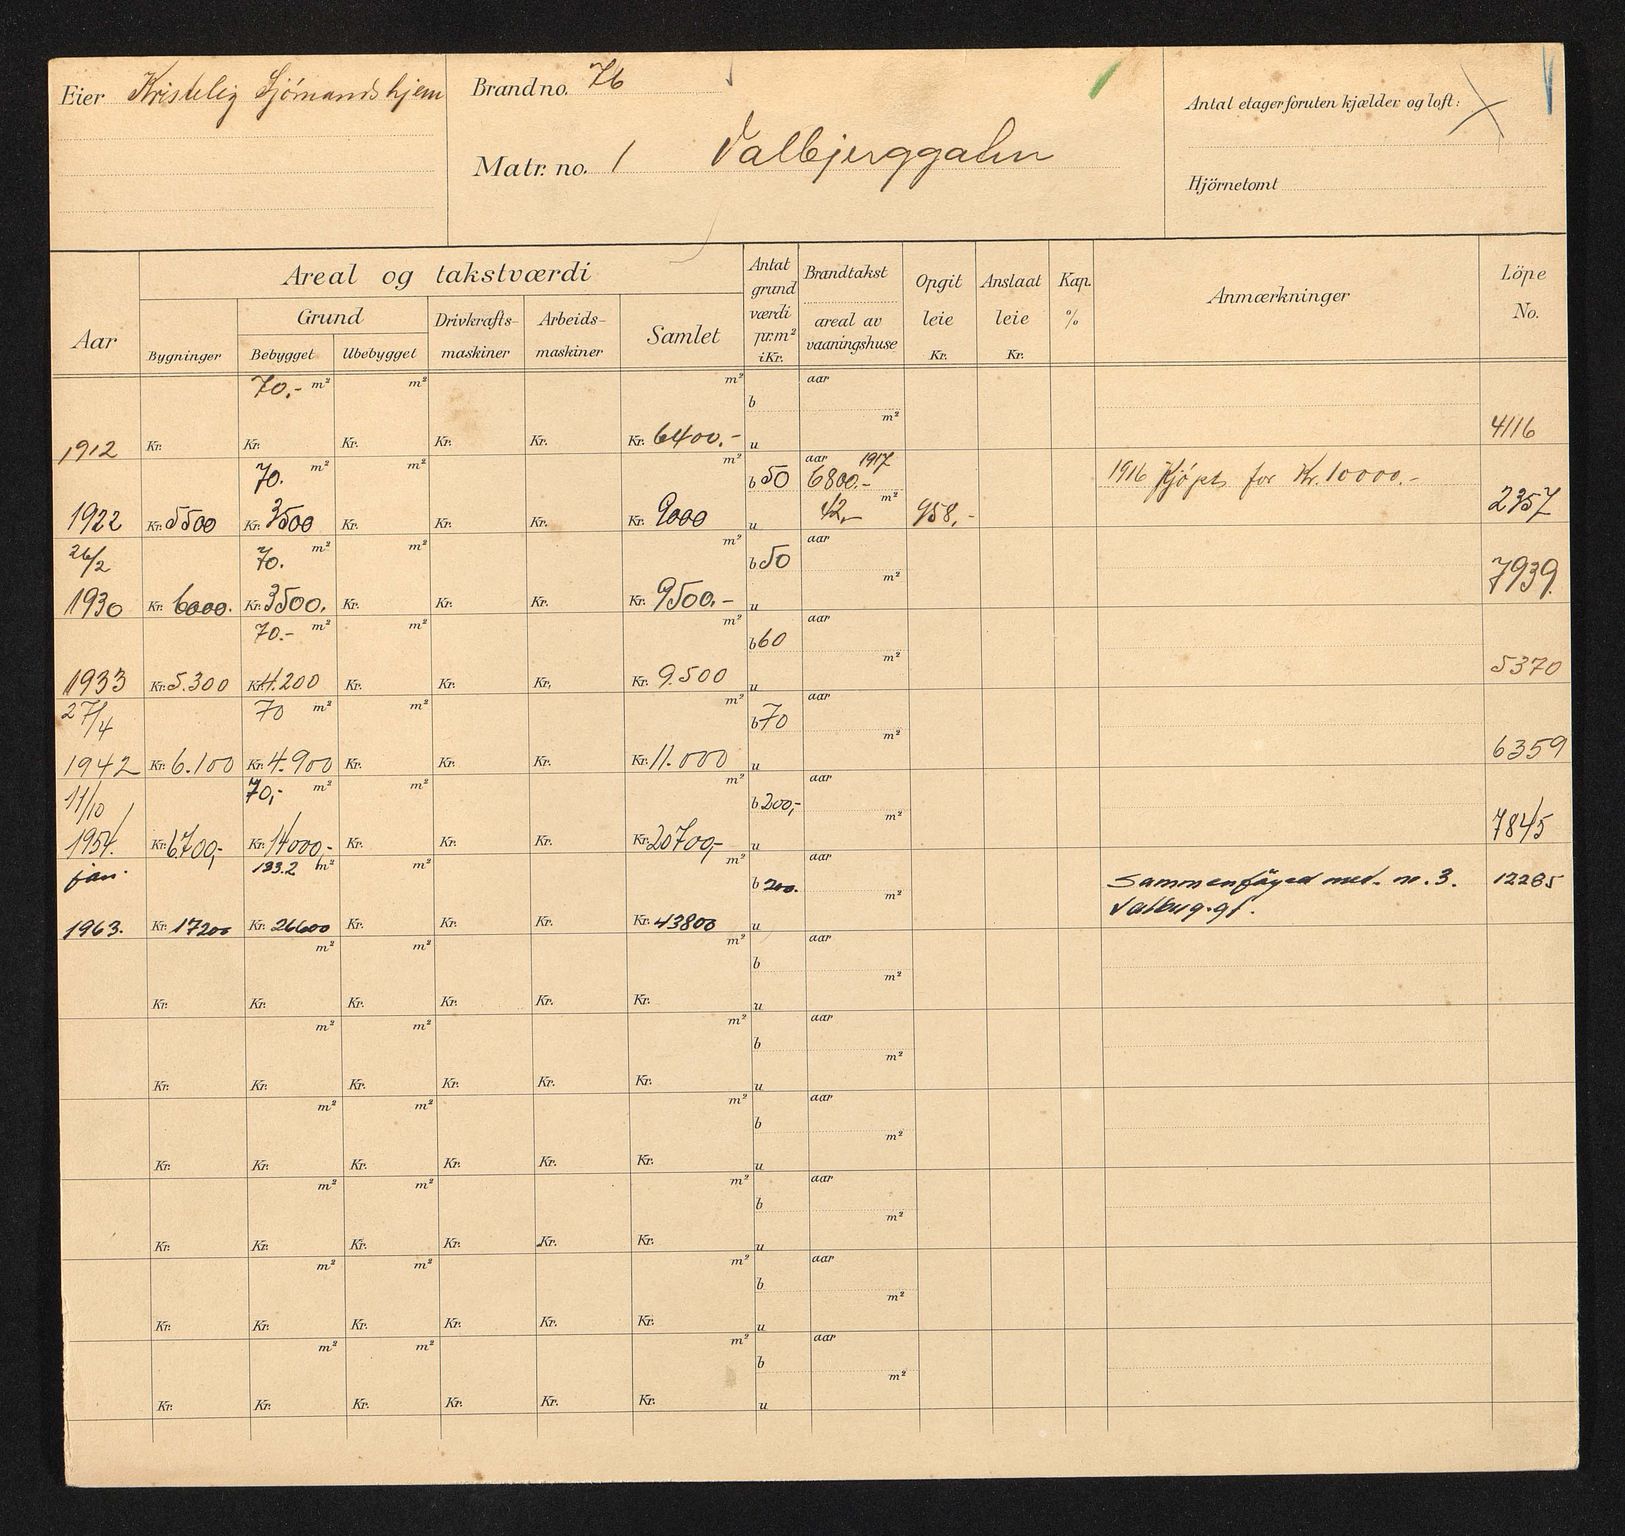 Eier Kristelig Sjömandshjem
Brand no. 76
Matr. no. 1 Valbjerggaten
Antal etager foruten kjælder og loft:
Hjörnetomt
Areal og takstværdi
Aar
Bygninger
Grund
Bebygget Ubebygget
Drivkrafts-
maskiner
Arbeids-
maskiner
Samlet
Antat
grund
værdi
pr. m²
i Kr.
Brandtakst
areal av
vaaningshuse
Opgit
leie
Kr.
Anslaat
leie
Kr.
Kap.
%
Anmærkninger
Löpe
No.
70.- m² m² m² aar
b
m²
1912 Kr. Kr. Kr. Kr. Kr. Kr. 6400.- u 4116
70. m² m² m² b 50 aar 1917
6800.- 1916 Kjøpt for Kr. 10000.-
m²
1922 Kr. 5500 Kr. 3500 Kr. Kr. Kr. Kr. 9000 u 42,- 958,- 2357
26/2 70. m² m² m² b 50 aar
m²
1930 Kr. 6000. Kr. 3500. Kr. Kr. Kr. Kr. 9500.- u 7939.
70.- m² m² m² b 60 aar
m²
1933 Kr. 5.300 Kr. 4.200 Kr. Kr. Kr. Kr. 9.500 u 5370
27/4 70 m² m² m² b 70 aar
m²
1942 Kr. 6.100 Kr. 4.900 Kr. Kr. Kr. Kr. 11.000 u 6359
11/10 70,- m² m² m² b 200,- aar
m²
1954. Kr. 6700,- Kr. 14000,- Kr. Kr. Kr. Kr. 20700,- u 7845
jan. 133.2 m² m² m² b 200. aar Sammenføyed med. nr. 3. 12285
m² Valbrg.gt.
1963. Kr. 17200 Kr. 26600 Kr. Kr. Kr. Kr. 43800 u
m² m² m² aar
b
m²
Kr. Kr. Kr. Kr. Kr. Kr. u
m² m² m² aar
b
m²
Kr. Kr. Kr. Kr. Kr. Kr. u
m² m² m² aar
b
m²
Kr. Kr. Kr. Kr. Kr. Kr. u
m² m² m² aar
b
m²
Kr. Kr. Kr. Kr. Kr. Kr. u
m² m² m² aar
b
m²
Kr. Kr. Kr. Kr. Kr. Kr. u
m² m² m² aar
b
m²
Kr. Kr. Kr. Kr. Kr. Kr. u